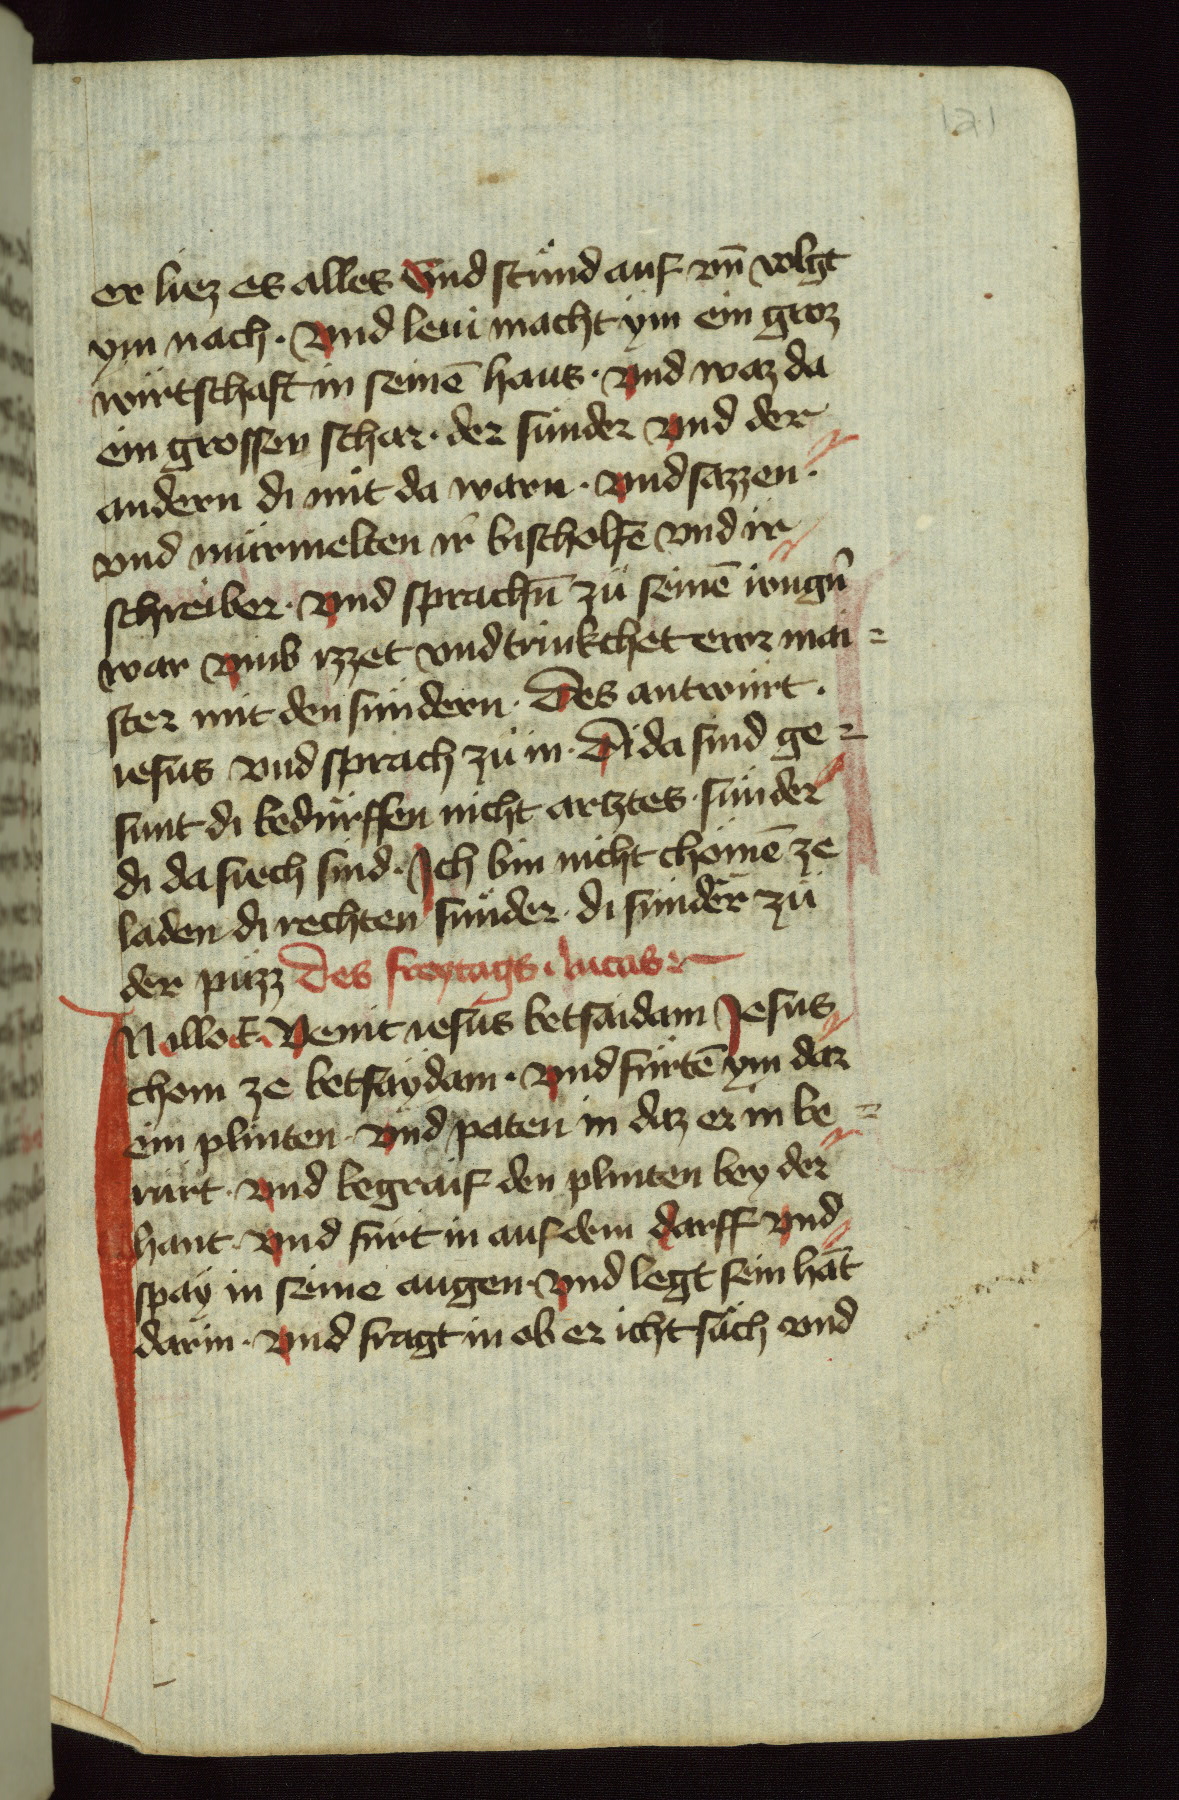 121
er liez es alles Vnd stuͦnd auf vn̄ volgt
ym nach · Vnd leui macht ym ein groz
wirtschaft in seinē haus · vnd waz da
ein grosseu schar · der sunder vnd der
andern di mit da warn · vnd sazzen ·
vnd murmelten ir bischolfē vnd ir
schreiber · vnd sprachn̄ zu seinē iungn̄
war vmb izzet vnd trinkchet ewr mai =
ster mit den sundern · Des antwurt ·
iesus vnd sprach zu in · Di da sind ge =
sunt di bedurffen nicht arztes · sunder
di da siech sind · Ich bin nicht chomē ze
laden di rechten sunder · di sunder zu
der puzz Des freytags · lucas
In illo t̄ · Venit iesus betsaidam Jesus
chom ze betsaydam · Vnd furtē ym dar
ein plinten · vnd paten in daz er in be =
rurt · vnd begraif den plinten bey der
hant · vnd furt in aus dem darff vnd
spay in seine augen · vnd legt sein hāt
darin · vnd fragt in ob er icht sach vnd